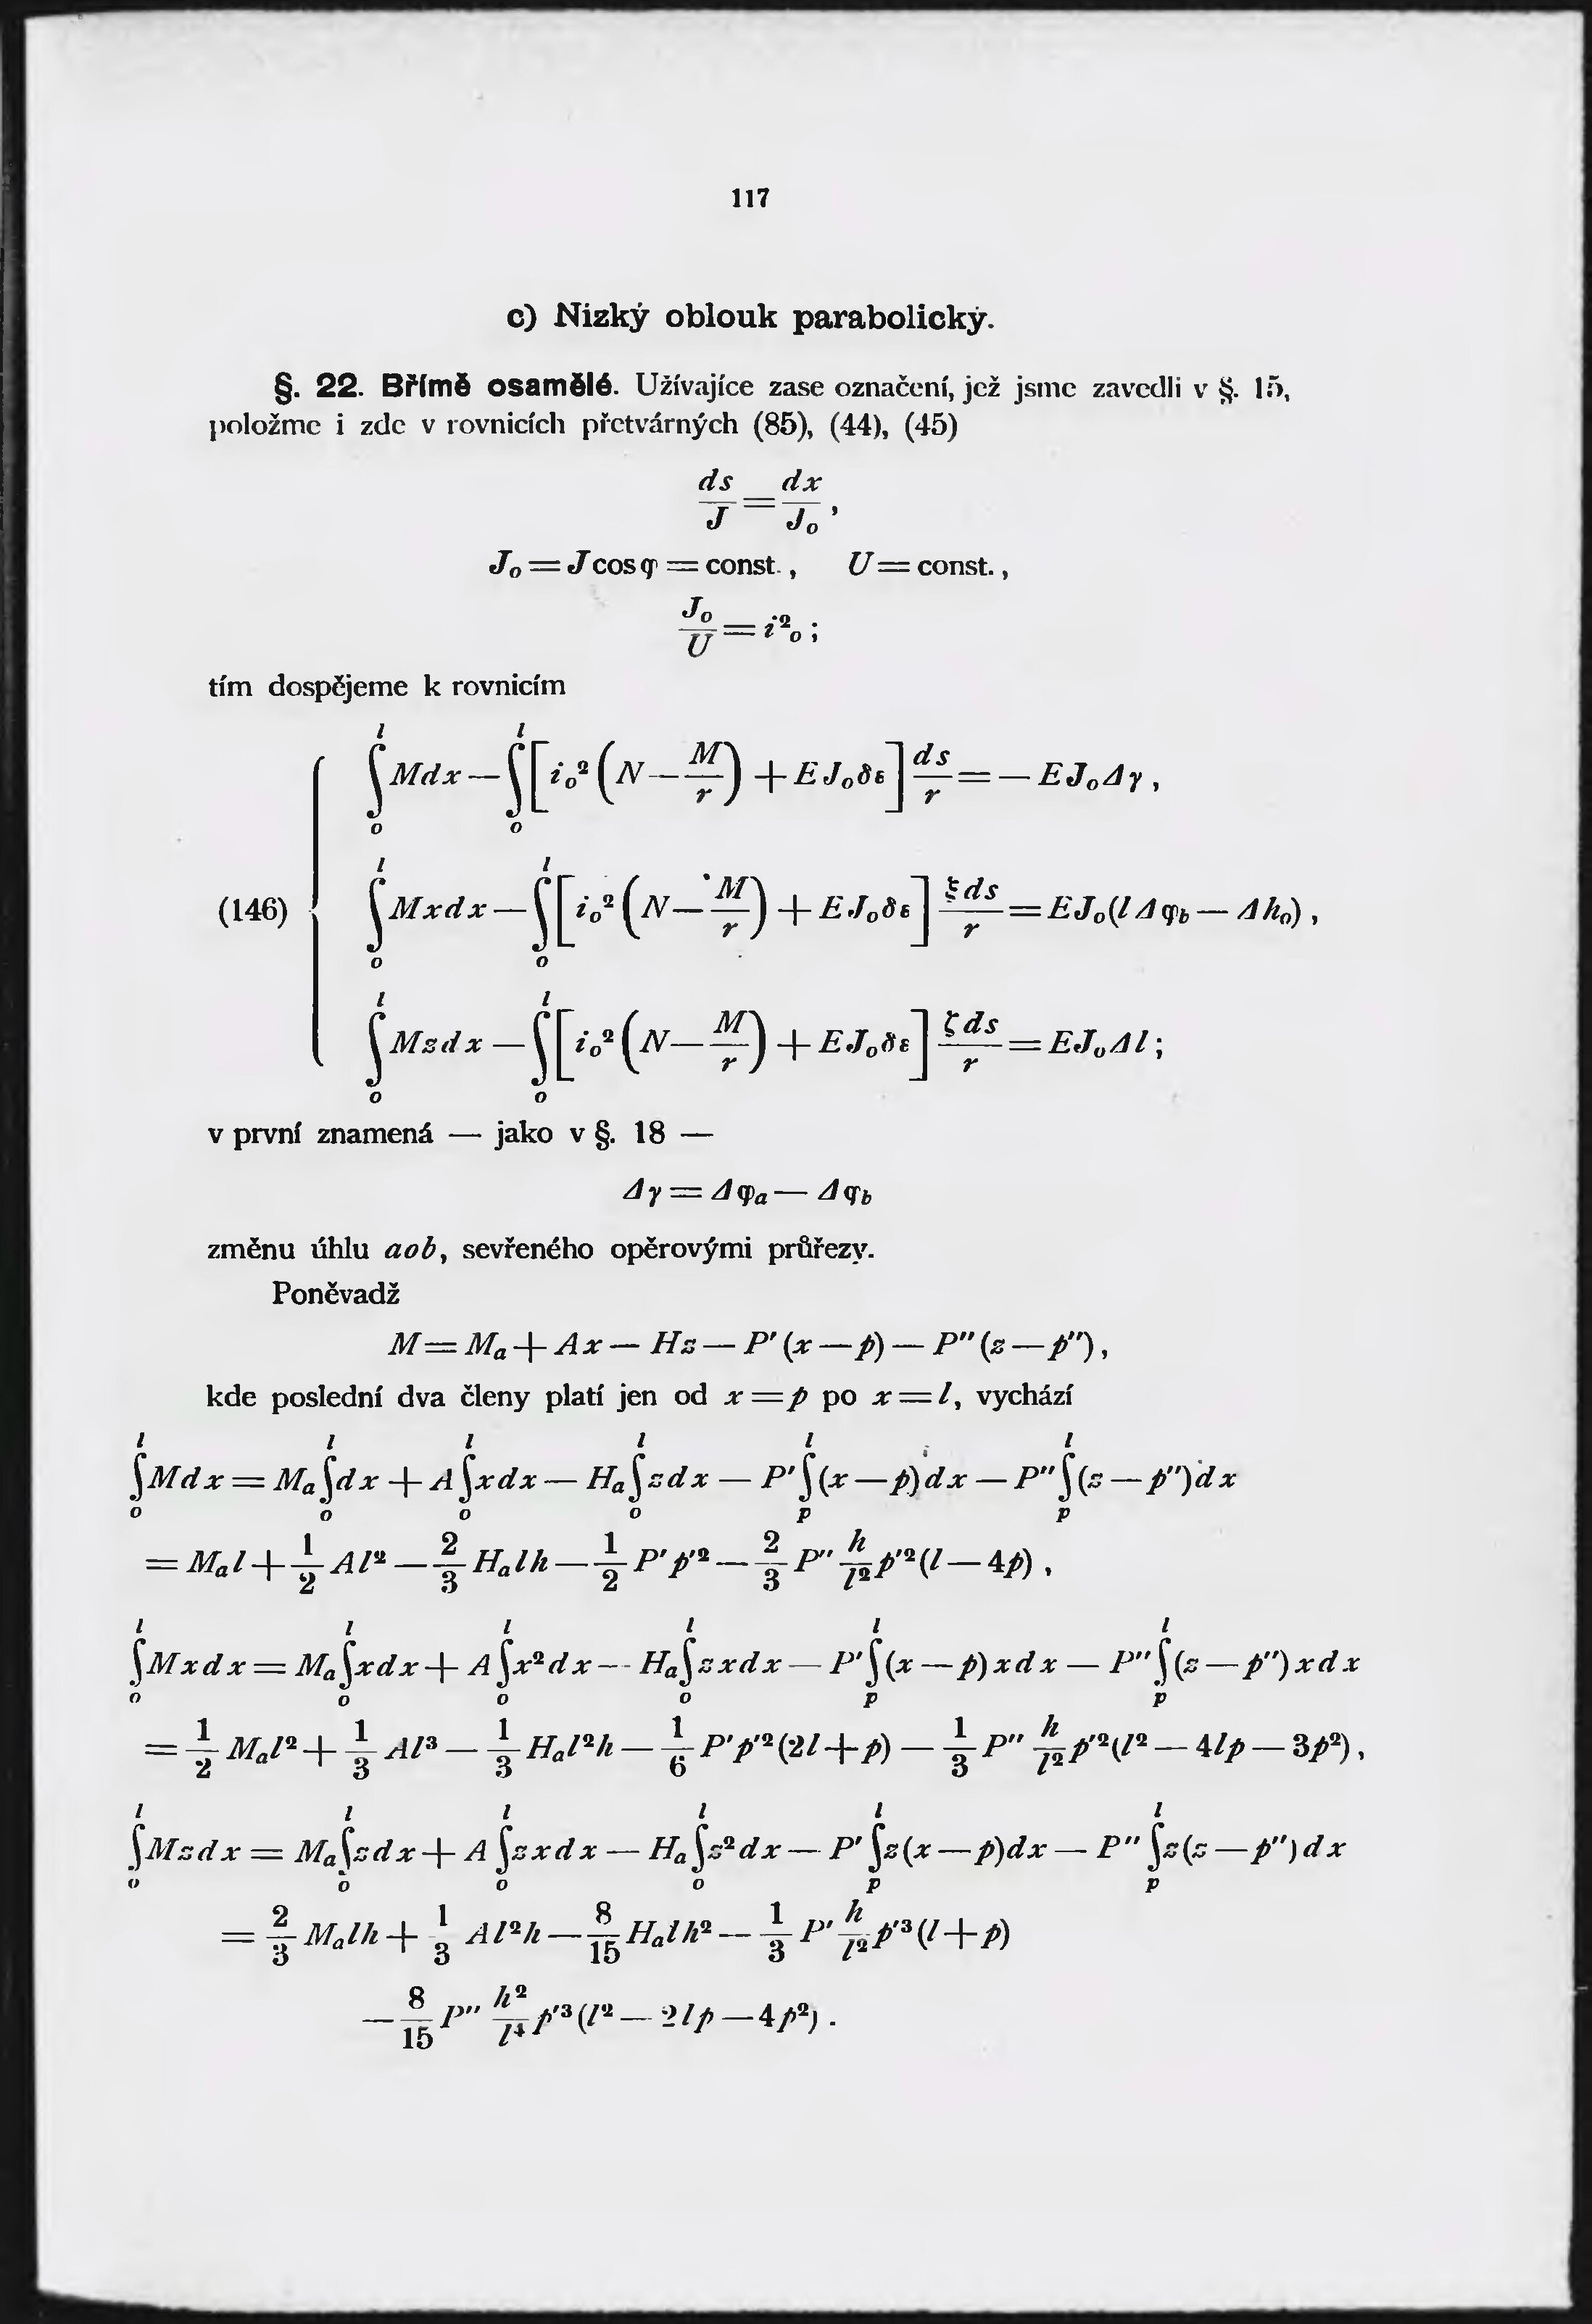 117
c) Nizký oblouk parabolický.
§. 22. Břímě osamělé. Užívajíce zase označení, jež jsme zavedli v §. 15,
položme i zde v rovnicích přetvárných (85), (44), (45)
\frac{ds}{J} = \frac{dx}{J_o},
J_o = J cos φ = const., U = const.,
\frac{J_o}{U} = i^2_o;
tím dospějeme k rovnicím
\int_o^l M dx — \int_o^l [i_o^2 (N — \frac{M}{r}) + E J_o δε] \frac{ds}{r} = — E J_o Δγ,
(146) \int_o^l M x dx — \int_o^l [i_o^2 (N — \frac{M}{r}) + E J_o δε] \frac{ξ ds}{r} = E J_o (l Δφ_b — Δh_o),
\int_o^l M z dx — \int_o^l [i_o^2 (N — \frac{M}{r}) + E J_o δε] \frac{ζ ds}{r} = E J_o Δl;
v první znamená — jako v §. 18 —
Δγ = Δφ_a — Δφ_b
změnu úhlu aob, sevřeného opěrovými průřezy.
Poněvadž
M = M_a + Ax — Hz — P' (x — p) — P'' (z — p''),
kde poslední dva členy platí jen od x = p po x = l, vychází
\int_o^l M dx = M_a \int_o^l dx + A \int_o^l x dx — H_a \int_o^l z dx — P' \int_p^l (x — p) dx — P'' \int_p^l (z — p'') dx
= M_a l + \frac{1}{2} A l^2 — \frac{2}{3} H_a l h — \frac{1}{2} P' p'^2 — \frac{2}{3} P'' \frac{h}{l^2} p'^2 (l — 4p),
\int_o^l M x dx = M_a \int_o^l x dx + A \int_o^l x^2 dx — H_a \int_o^l z x dx — P' \int_p^l (x — p) x dx — P'' \int_p^l (z — p'') x dx
= \frac{1}{2} M_a l^2 + \frac{1}{3} A l^3 — \frac{1}{3} H_a l^2 h — \frac{1}{6} P' p'^2 (2l + p) — \frac{1}{3} P'' \frac{h}{l^2} p'^2 (l^2 — 4lp — 3p^2),
\int_o^l M z dx = M_a \int_o^l z dx + A \int_o^l z x dx — H_a \int_o^l z^2 dx — P' \int_p^l z (x — p) dx — P'' \int_p^l z (z — p'') dx
= \frac{2}{3} M_a l h + \frac{1}{3} A l^2 h — \frac{8}{15} H_a l h^2 — \frac{1}{3} P' \frac{h}{l^2} p'^3 (l + p)
— \frac{8}{15} P'' \frac{h^2}{l^4} p'^3 (l^2 — 2lp — 4p^2).